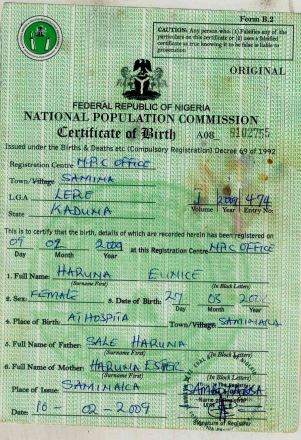 Form B.2
CAUTION: Any person who (1) Falsifies any of the
particulars on this certificate or (2) uses a falsified
certificate as true knowing it to be false is liable to
prosecution
ORIGINAL
FEDERAL REPUBLIC OF NIGERIA
NATIONAL POPULATION COMMISSION
Certificate of Birth A08 9102755
Issued under the Births & Deaths etc (Compulsory Registration) Decree 69 of 1992
Registration Centre NPC OFFICE
Town/Village SAMINA
L.G.A LERE 1 2009 474
State KADUNA Volume Year Entry No:
This is to certify that the birth, details of which are recorded herein has been registered on
09 02 2009 at this Registration Centre NPC OFFICE
Day Month Year
1. Full Name: HARUNA EUNICE
(Surname First) (In Block Letters)
2. Sex: Female 3. Date of Birth: 27 03
Day Month Year
4. Place of Birth: AT HOSPITA Town/Village SAMINAKA
5. Full Name of Father: SALE HARUNA
(Surname First) (In Block Letters)
6. Full Name of Mother: HARUNA ESTER
(Surname First) (In Block Letters)
Place of Issue: SAMINAKA
Name of Registrar
Date: 10 - 02 - 2009
Signature of Registrar